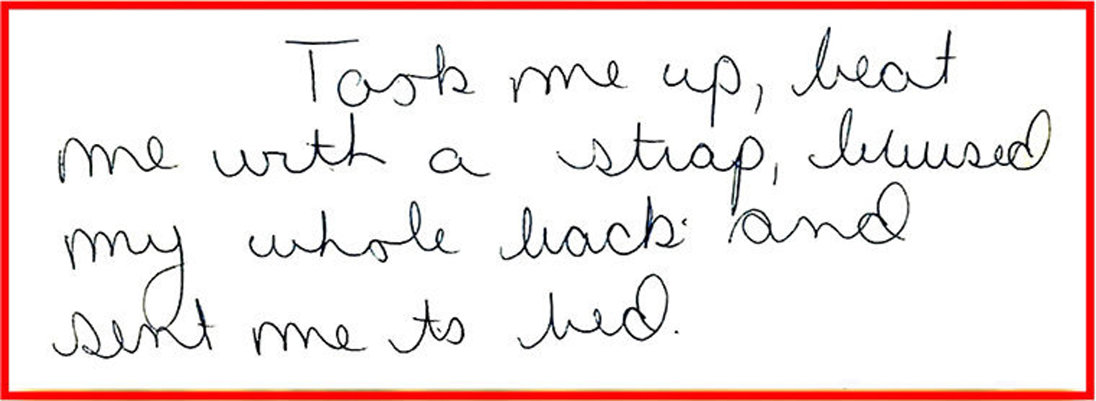 Took me up, beat
me with a strap, bruised
my whole back and
sent me to bed.